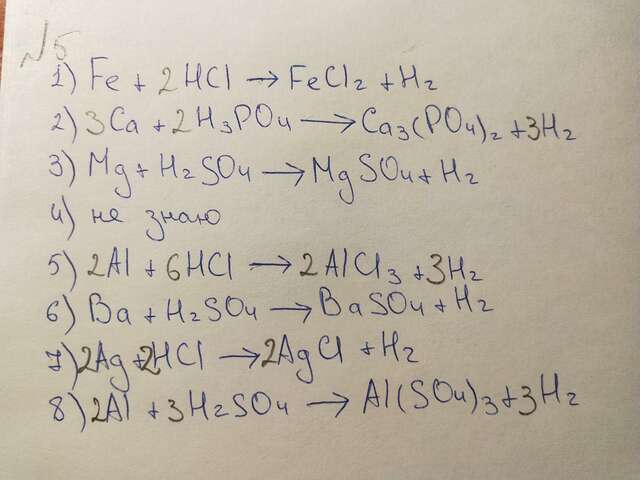 №5
1) Fe + 2HCl → FeCl₂ + H₂
2) 3Ca + 2H₃PO₄ → Ca₃(PO₄)₂ + 3H₂
3) Mg + H₂SO₄ → MgSO₄ + H₂
4) не знаю
5) 2Al + 6HCl → 2AlCl₃ + 3H₂
6) Ba + H₂SO₄ → BaSO₄ + H₂
7) 2Ag + 2HCl → 2AgCl + H₂
8) 2Al + 3H₂SO₄ → Al(SO₄)₃ + 3H₂